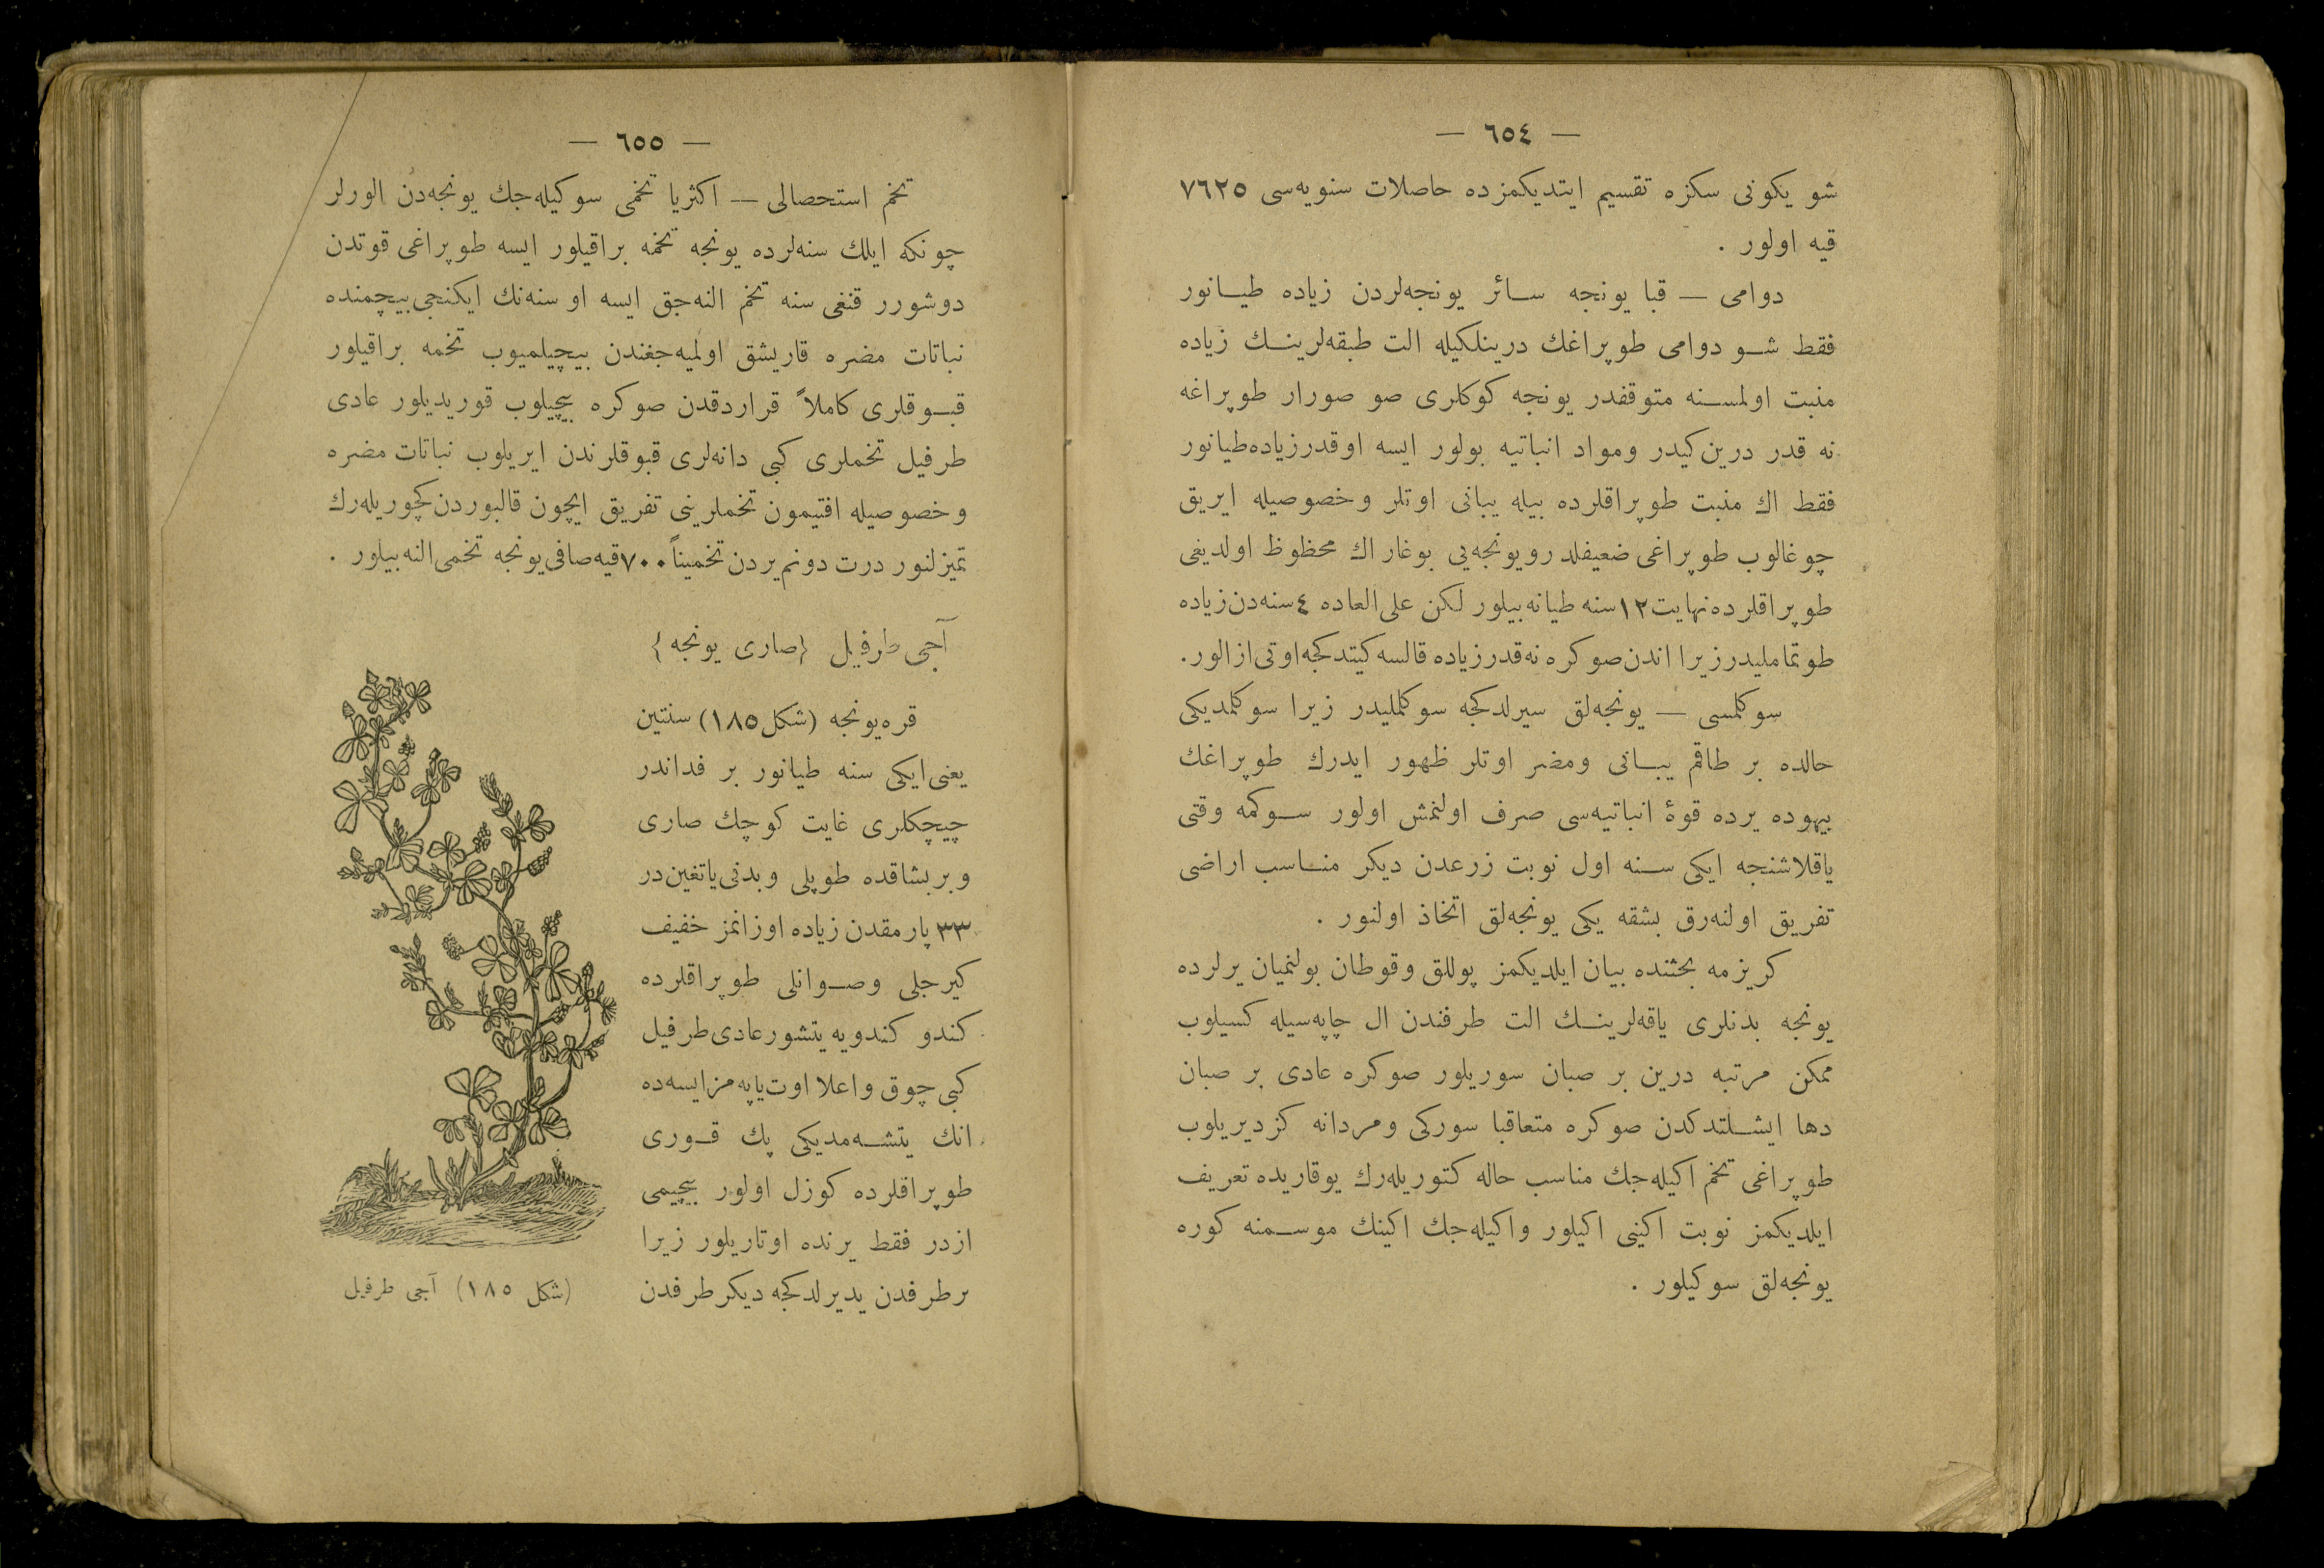 — ٦٥٤ —
شو يكونى سكزه تقسيم ايتديكمزده حاصلات سنويه‌سى ٧٦٢٥
قيه اولور .
دوامى — قبا يونجه سائر يونجه‌لردن زياده طيانور
فقط شو دوامى طوپراغك درينلكيله الت طبقه‌لرينك زياده
منبت اولمسنه متوقفدر يونجه كوكلرى صو صورار طوپراغه
نه قدر درين كيدر ومواد انباتيه بولور ايسه اوقدر زياده طيانور
فقط اك منبت طوپراقلرده بيله يبانى اوتلر وخصوصيله ايريق
چوغالوب طوپراغى ضعيفلدر ويونجه‌يى بوغار اك محظوظ اولديغى
طوپراقلرده نهايت ١٢ سنه طيانه بيلور لكن على العاده ٤ سنه‌دن زياده
طوتماملیدر زيرا اندن صوكره نه قدر زياده قالسه كيتدكجه اوتى ازالور.
سوكلمسى — يونجه‌لق سيرلدكجه سوكلمليدر زيرا سوكلمديكى
حالده بر طاقم يبانى ومضر اوتلر ظهور ايدرك طوپراغك
بيهوده يرده قوۀ انباتيه‌سى صرف اولنمش اولور سوكمه وقتى
ياقلاشنجه ايكى سنه اول نوبت زرعدن ديكر مناسب اراضى
تفريق اولنه‌رق بشقه يكى يونجه‌لق اتخاذ اولنور .
كريزمه بحثنده بيان ايلديكمز پوللق وقوطان بولنميان يرلرده
يونجه بدنلرى ياقه‌لرينك الت طرفندن ال چاپه‌سيله كسيلوب
ممكن مرتبه درين بر صبان سوريلور صوكره عادى بر صبان
دها ايشلتدكدن صوكره متعاقبا سوركى ومردانه كزديريلوب
طوپراغى تخم اكيله‌جك مناسب حاله كتوريله‌رك يوقاريده تعريف
ايلديكمز نوبت اكينى اكيلور واكيله‌جك اكينك موسمنه كوره
يونجه‌لق سوكيلور .
— ٦٥٥ —
تخم استحصالى — اكثريا تخمى سوكيله‌جك يونجه‌دن الورلر
چونكه ايلك سنه‌لرده يونجه تخمه براقيلور ايسه طوپراغى قوتدن
دوشورر قنغى سنه تخم النه‌جق ايسه او سنه‌نك ايكنجى بيچمنده
نباتات مضره قاريشق اولميه‌جغندن بيچيلميوب تخمه براقيلور
قبوقلرى كاملاً قراردقدن صوكره بيچيلوب قوريديلور عادى
طرفيل تخملرى كبى دانه‌لرى قبوقلرندن ايريلوب نباتات مضره
وخصوصيله افتيمون تخملرينى تفريق ايچون قالبوردن كچوريله‌رك
تميزلنور درت دونم يردن تخميناً ٧٠٠ قيه صافى يونجه تخمى النه بيلور .
آجى طرفيل {صارى يونجه}
قره يونجه (شكل ١٨٥) سنتين
يعنى ايكى سنه طيانور بر فداندر
چيچكلرى غايت كوچك صارى
وبر بشاقده طوپلى وبدنى ياتغين در
٣٣ پارمقدن زياده اوزانمز خفيف
كيرجلى وصوانلى طوپراقلرده
كندو كندويه يتشور عادى طرفيل
كبى چوق واعلا اوت ياپه مز ايسه ده
انك يتشه‌مديكى پك قورى
طوپراقلرده كوزل اولور بيچيمى
ازدر فقط يرنده اوتاريلور زيرا
بر طرفدن يديرلدكجه ديكر طرفدن
(شكل ١٨٥) آجى طرفيل